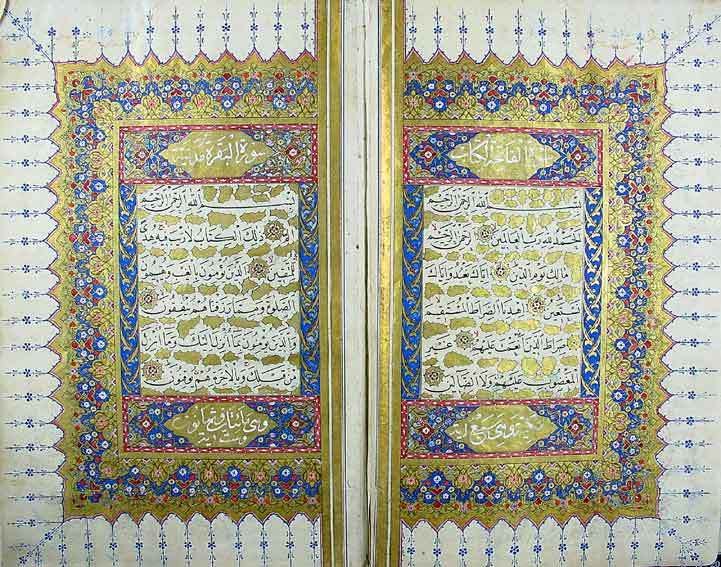 سورة الفاتحة الكتاب
بِسْمِ اللهِ الرَّحْمٰنِ الرَّحِيمِ
اَلْحَمْدُ لِلّٰهِ رَبِّ الْعَالَمِينَ الرَّحْمٰنِ الرَّحِيمِ
مَالِكِ يَوْمِ الدِّينِ اِيَّاكَ نَعْبُدُ وَاِيَّاكَ
نَسْتَعِينُ اِهْدِنَا الصِّرَاطَ الْمُسْتَقِيمَ
صِرَاطَ الَّذِينَ اَنْعَمْتَ عَلَيْهِمْ غَيْرِ
الْمَغْضُوبِ عَلَيْهِمْ وَلَا الضَّالِّينَ
وهي سبع آية
سورة البقرة مدنية
بِسْمِ اللهِ الرَّحْمٰنِ الرَّحِيمِ
الم ذٰلِكَ الْكِتَابُ لَا رَيْبَ فِيهِ هُدًى
لِلْمُتَّقِينَ الَّذِينَ يُؤْمِنُونَ بِالْغَيْبِ وَيُقِيمُونَ
الصَّلٰوةَ وَمِمَّا رَزَقْنَاهُمْ يُنْفِقُونَ
وَالَّذِينَ يُؤْمِنُونَ بِمَا اُنْزِلَ اِلَيْكَ وَمَا اُنْزِلَ
مِنْ قَبْلِكَ وَبِالْآخِرَةِ هُمْ يُوقِنُونَ
وهي مائتان وثمانون
وست آية